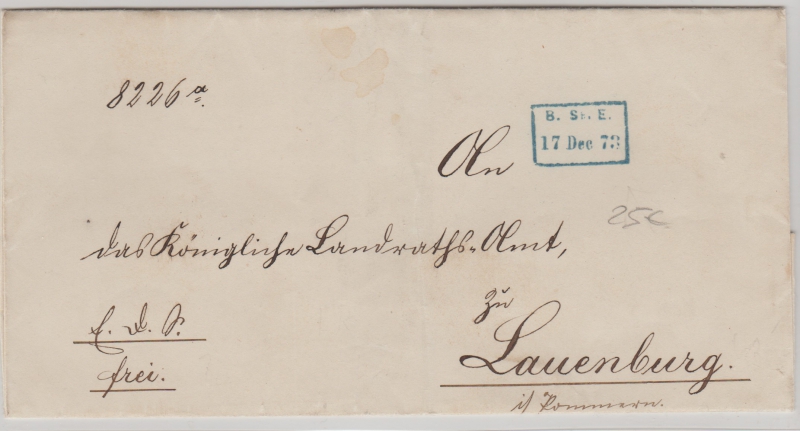 8226 a.
B. St. E.
17 Dec 73
An
das Königliche Landraths-Amt,
25€
zu
E. D. S.
frei.
Lauenburg.
i/ Pommern.